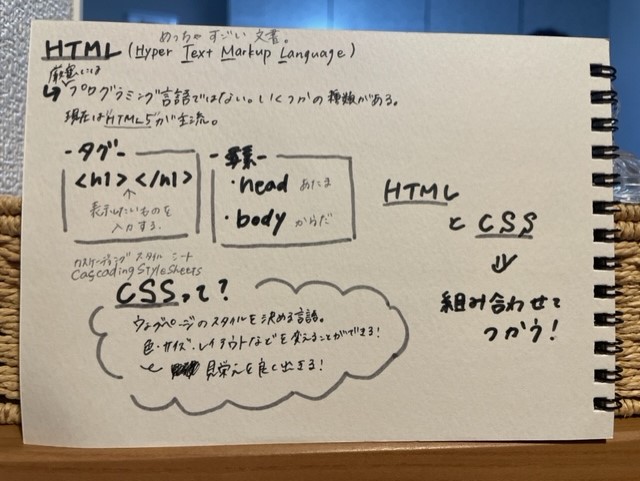 めっちゃ すごい 文書。
HTML (Hyper Text Markup Language)
厳密には
↳ プログラミング言語ではない。いくつかの種類がある。
現在はHTML5が主流。
-タグ-
<h1> </h1>
↑
表示したいものを
入力する。
-要素-
・head あたま
・body からだ
HTML
と CSS
⇓
組み合わせて
つかう!
カスケーディング スタイル シート
Cascading Style Sheets
CSSって?
ウェブページのスタイルを決める言語。
色・サイズ・レイアウトなどを変えることができる!
見栄えを良く出きる!